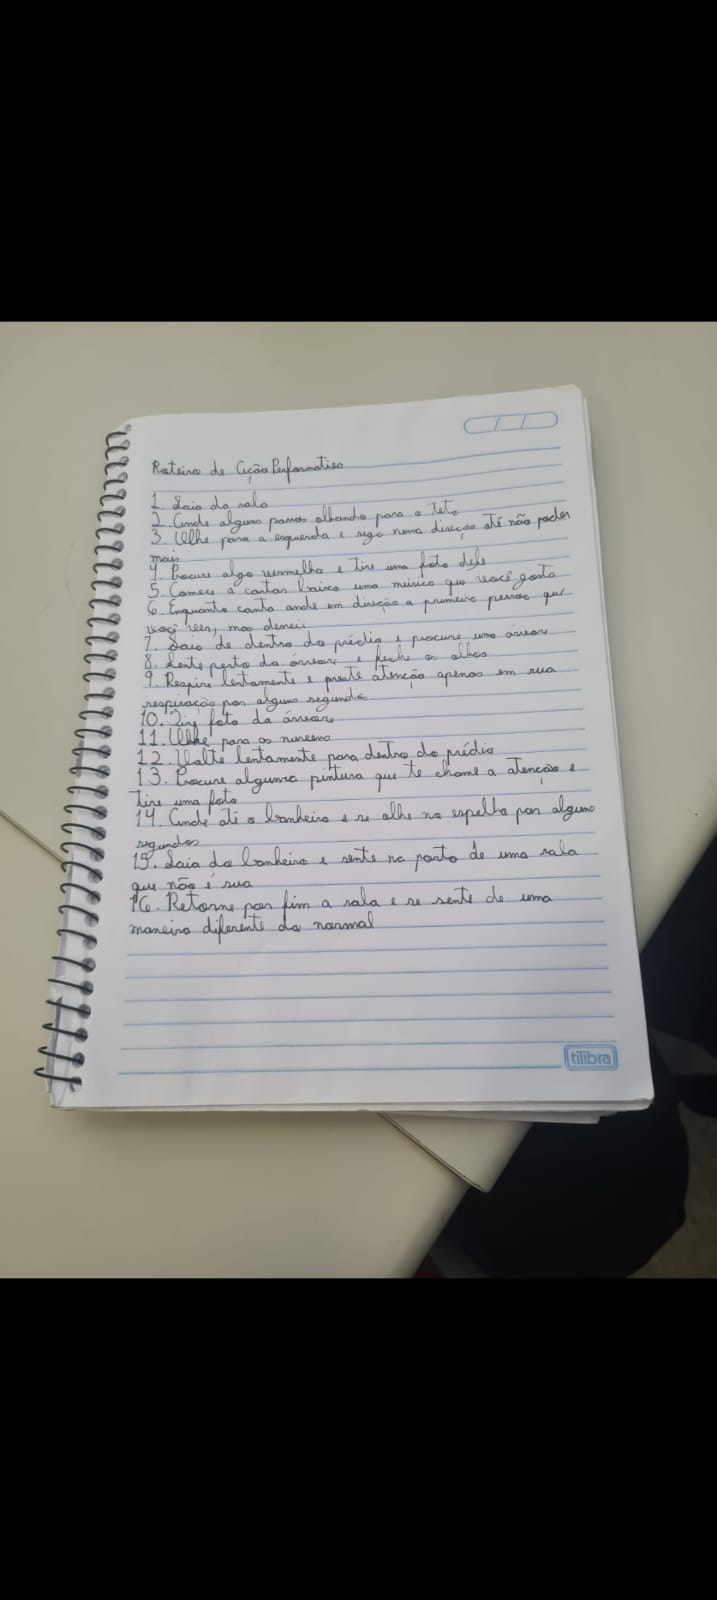 Roteiro de Ação Performativo
1. Saia da sala
2. Ande alguns passos olhando para o teto
3. Olhe para a esquerda e siga nessa direção até não poder
mais
4. Procure algo vermelho e tire uma foto dele
5. Comece a cantar baixo uma música que você gosta
6. Enquanto canta ande em direção a primeira pessoa que
você veer, mas
7. Saia de dentro do prédio e procure uma árvore
8. Sente perto da árvore e feche os olhos
9. Respire lentamente e preste atenção apenas em sua
respiração por alguns segundos
10. Tire foto da árvore
11. Olhe para as nuvens
12. Volte lentamente para dentro do prédio
13. Procure alguma pintura que te chame a atenção e
tire uma foto
14. Ande até o banheiro e se olhe no espelho por alguns
segundos
15. Saia do banheiro e sente na porta de uma sala
que não é sua
16. Retorne por fim a sala e se sente de uma
maneira diferente da normal
tilibra